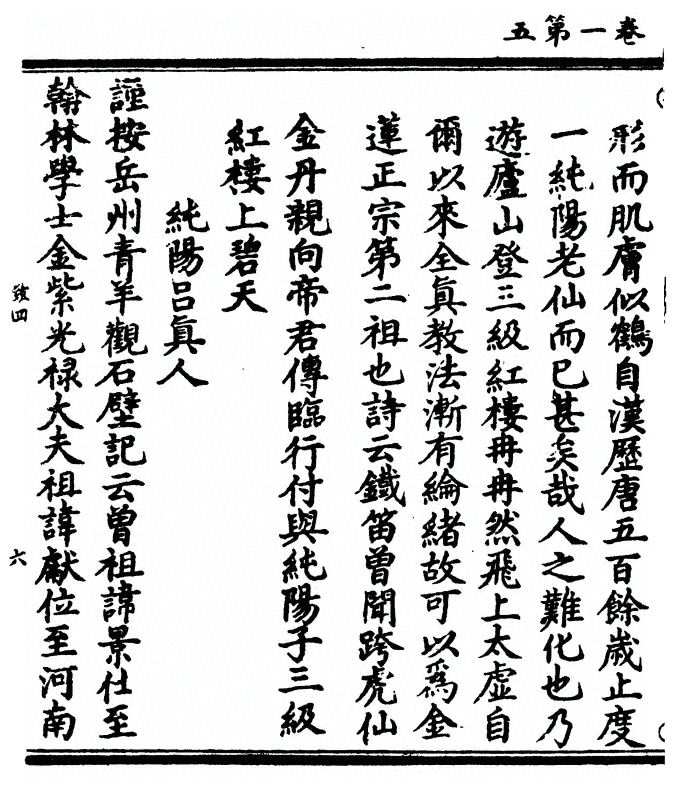 五第一卷
形而肌膚似鶴自漢歷唐五百餘歲止度
一純陽老仙而已甚矣哉人之難化也乃
遊廬山登三級紅樓冉冉然飛上太虛自
爾以來全眞教法漸有綸緒故可以爲金
蓮正宗第二祖也詩云鐵笛曾聞跨虎仙
金丹親向帝君傳臨行付與純陽子三級
紅樓上碧天
純陽呂眞人
謹按岳州青羊觀石壁記云曾祖諱景仕至
翰林學士金紫光祿大夫祖諱獻位至河南
致四
六